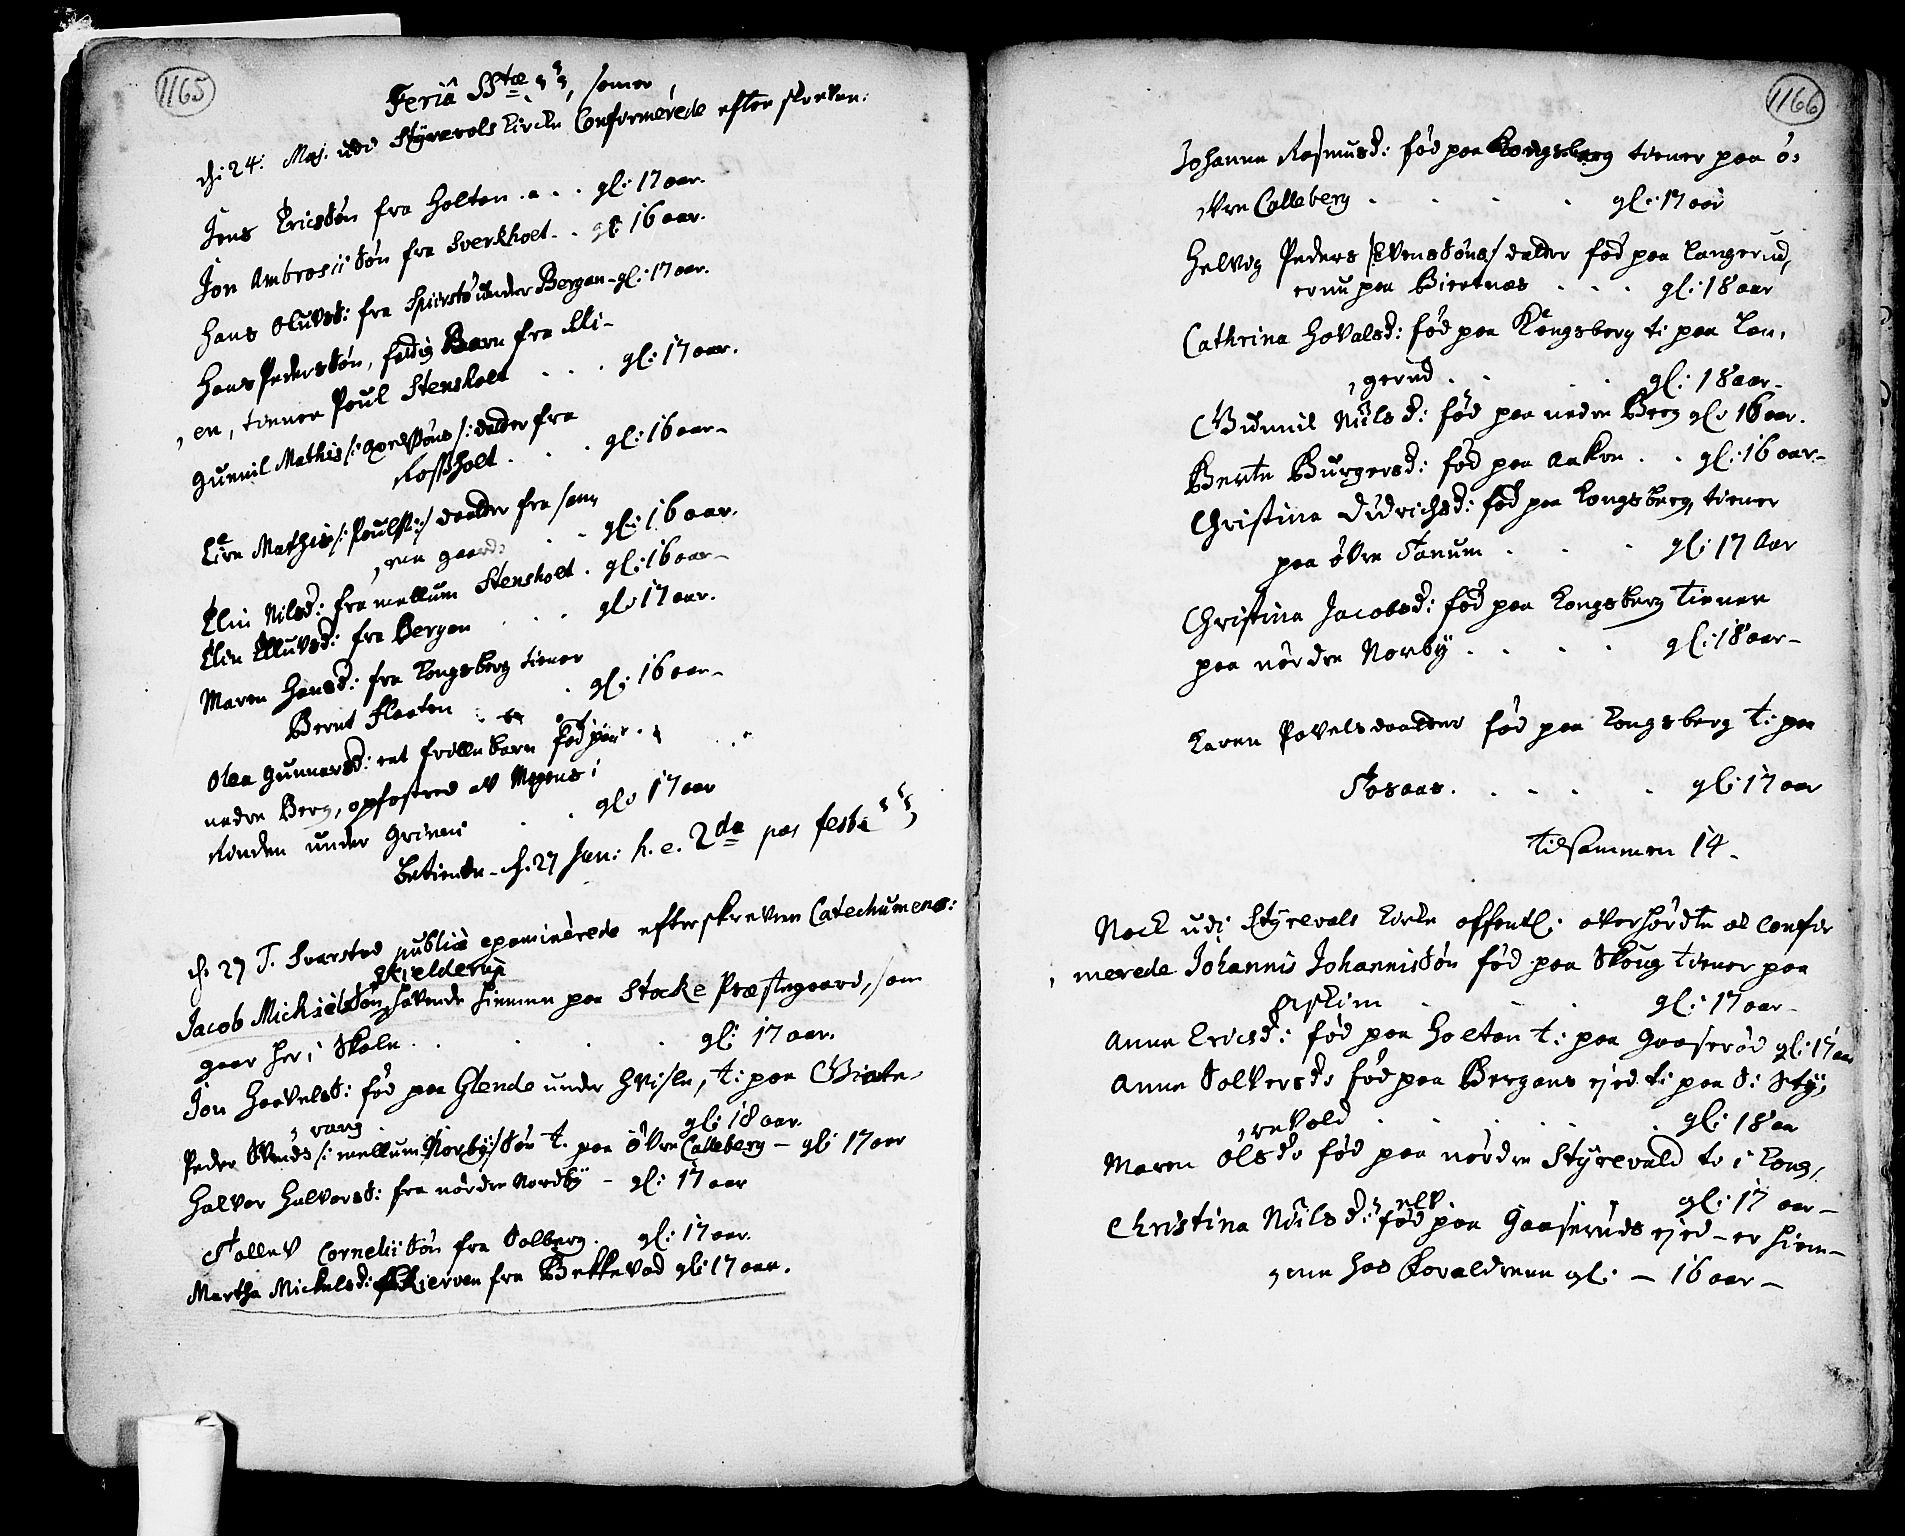 1165
Feriâ SStæ
d: 24: Maj. udi Styrevols Kircke Confirmerede efterskrevne:
Jens Ericsøn fra Holten . . . gl: 17 aar.
Jon Ambrosii Søn fra Sverkholt . . gl: 16 aar.
Hans Olufss: fra under Bergan - gl: 17 aar.
Hans Pedersøn, fattig Barn fra Kli-
en, tiener Poul Stensholt . . . gl: 17 aar.
Gunnil Mathis /: :/ datter fra
Rossholt . . . gl: 16 aar -
Mathis /: Pouls :/ daatter fra sam,
me gaard: . . gl: 16 aar.
Elin Nilsd: fra mellum Stensholt . gl: 16 aar -
Elin fra Bergan . . . gl: 17 aar.
Maren Hansd: fra Kongsberg tiener
Bernt Flaaten . gl: 16 aar -
Olea Gunnarsd: eet frille barn fød paa
nedre Berg, opfostred af Mogens i
Rønden under Grinni . . gl: 17 aar
d: 27 Jan: h. e. 2da pas festi
d: 27 J. Svarstad publicè examinerede efterskrevne Catechumenos:
Jacob Michielsøn Skielderup havende hiemme paa Stocke Præstegaard, som
gaar her i Skole . . . gl: 17 aar.
Jon Haavelss: fød paa Glende under Hvisle, t: paa Giete-
, vang . gl: 18 aar.
Peder Svends /: mellum Norby :/ Søn t. paa øvre Calleberg - gl: 17 aar
Halvor Halvorss: fra nordre Nordby - gl: 17 aar
Tollev Cornelii Søn fra Solberg . gl: 17 aar.
Martha Mickelsd: fra Bekkevad gl: 17 aar.
1166
Johanna Rasmusd: fød paa Kongsberg tiener paa ø-
,vre Calleberg . . . . gl: 17 aar
Helvig Peders / Svensøns / datter fød paa Langerud,
er nu paa Biertnæs . . . gl: 18 aar
Cathrina Hovalsd: fød paa Kongsberg t: paa Lan,
,gerud . . . . gl: 18 aar -
Gunnil Nilsd: fød paa nedre Berg gl: 16 aar.
Berte Burgersd: fød paa Aakre . . gl: 16 aar -
Christina Didrichsd: fød paa Kongsberg, tiener
paa øvre Tanum . . . gl: 17 Aar
Christina Jacobsd: fød paa Kongsberg tiener
paa nordre Norby . . . . gl: 18 aar -
Karen Povelsdaatter fød paa Kongsberg t: paa
Fosaas . . . . . gl: 17 aar
tilsammen 14 -
Nock udi Styrevals Kircke offentl: overhørdte oc confir
, merede Johannis Johannisøn fød paa Skoug tiener paa
Askim . . . gl: 17 aar -
Anna Ericsd: fød paa Holtan t: paa Gaaserød gl: 17 aar
Anna Solversd: fød paa Bergans ejed. t: paa S: Sty,
,revold . . . . . gl: 18 aar
Maren Olsd: fød paa nordre Styrevald t: i Kong,
elv gl: 17 aar -
Christina Nilsd: fød paa Gaaseruds ejed - er hiem -
,me hos Forældrene gl: - 16 aar -